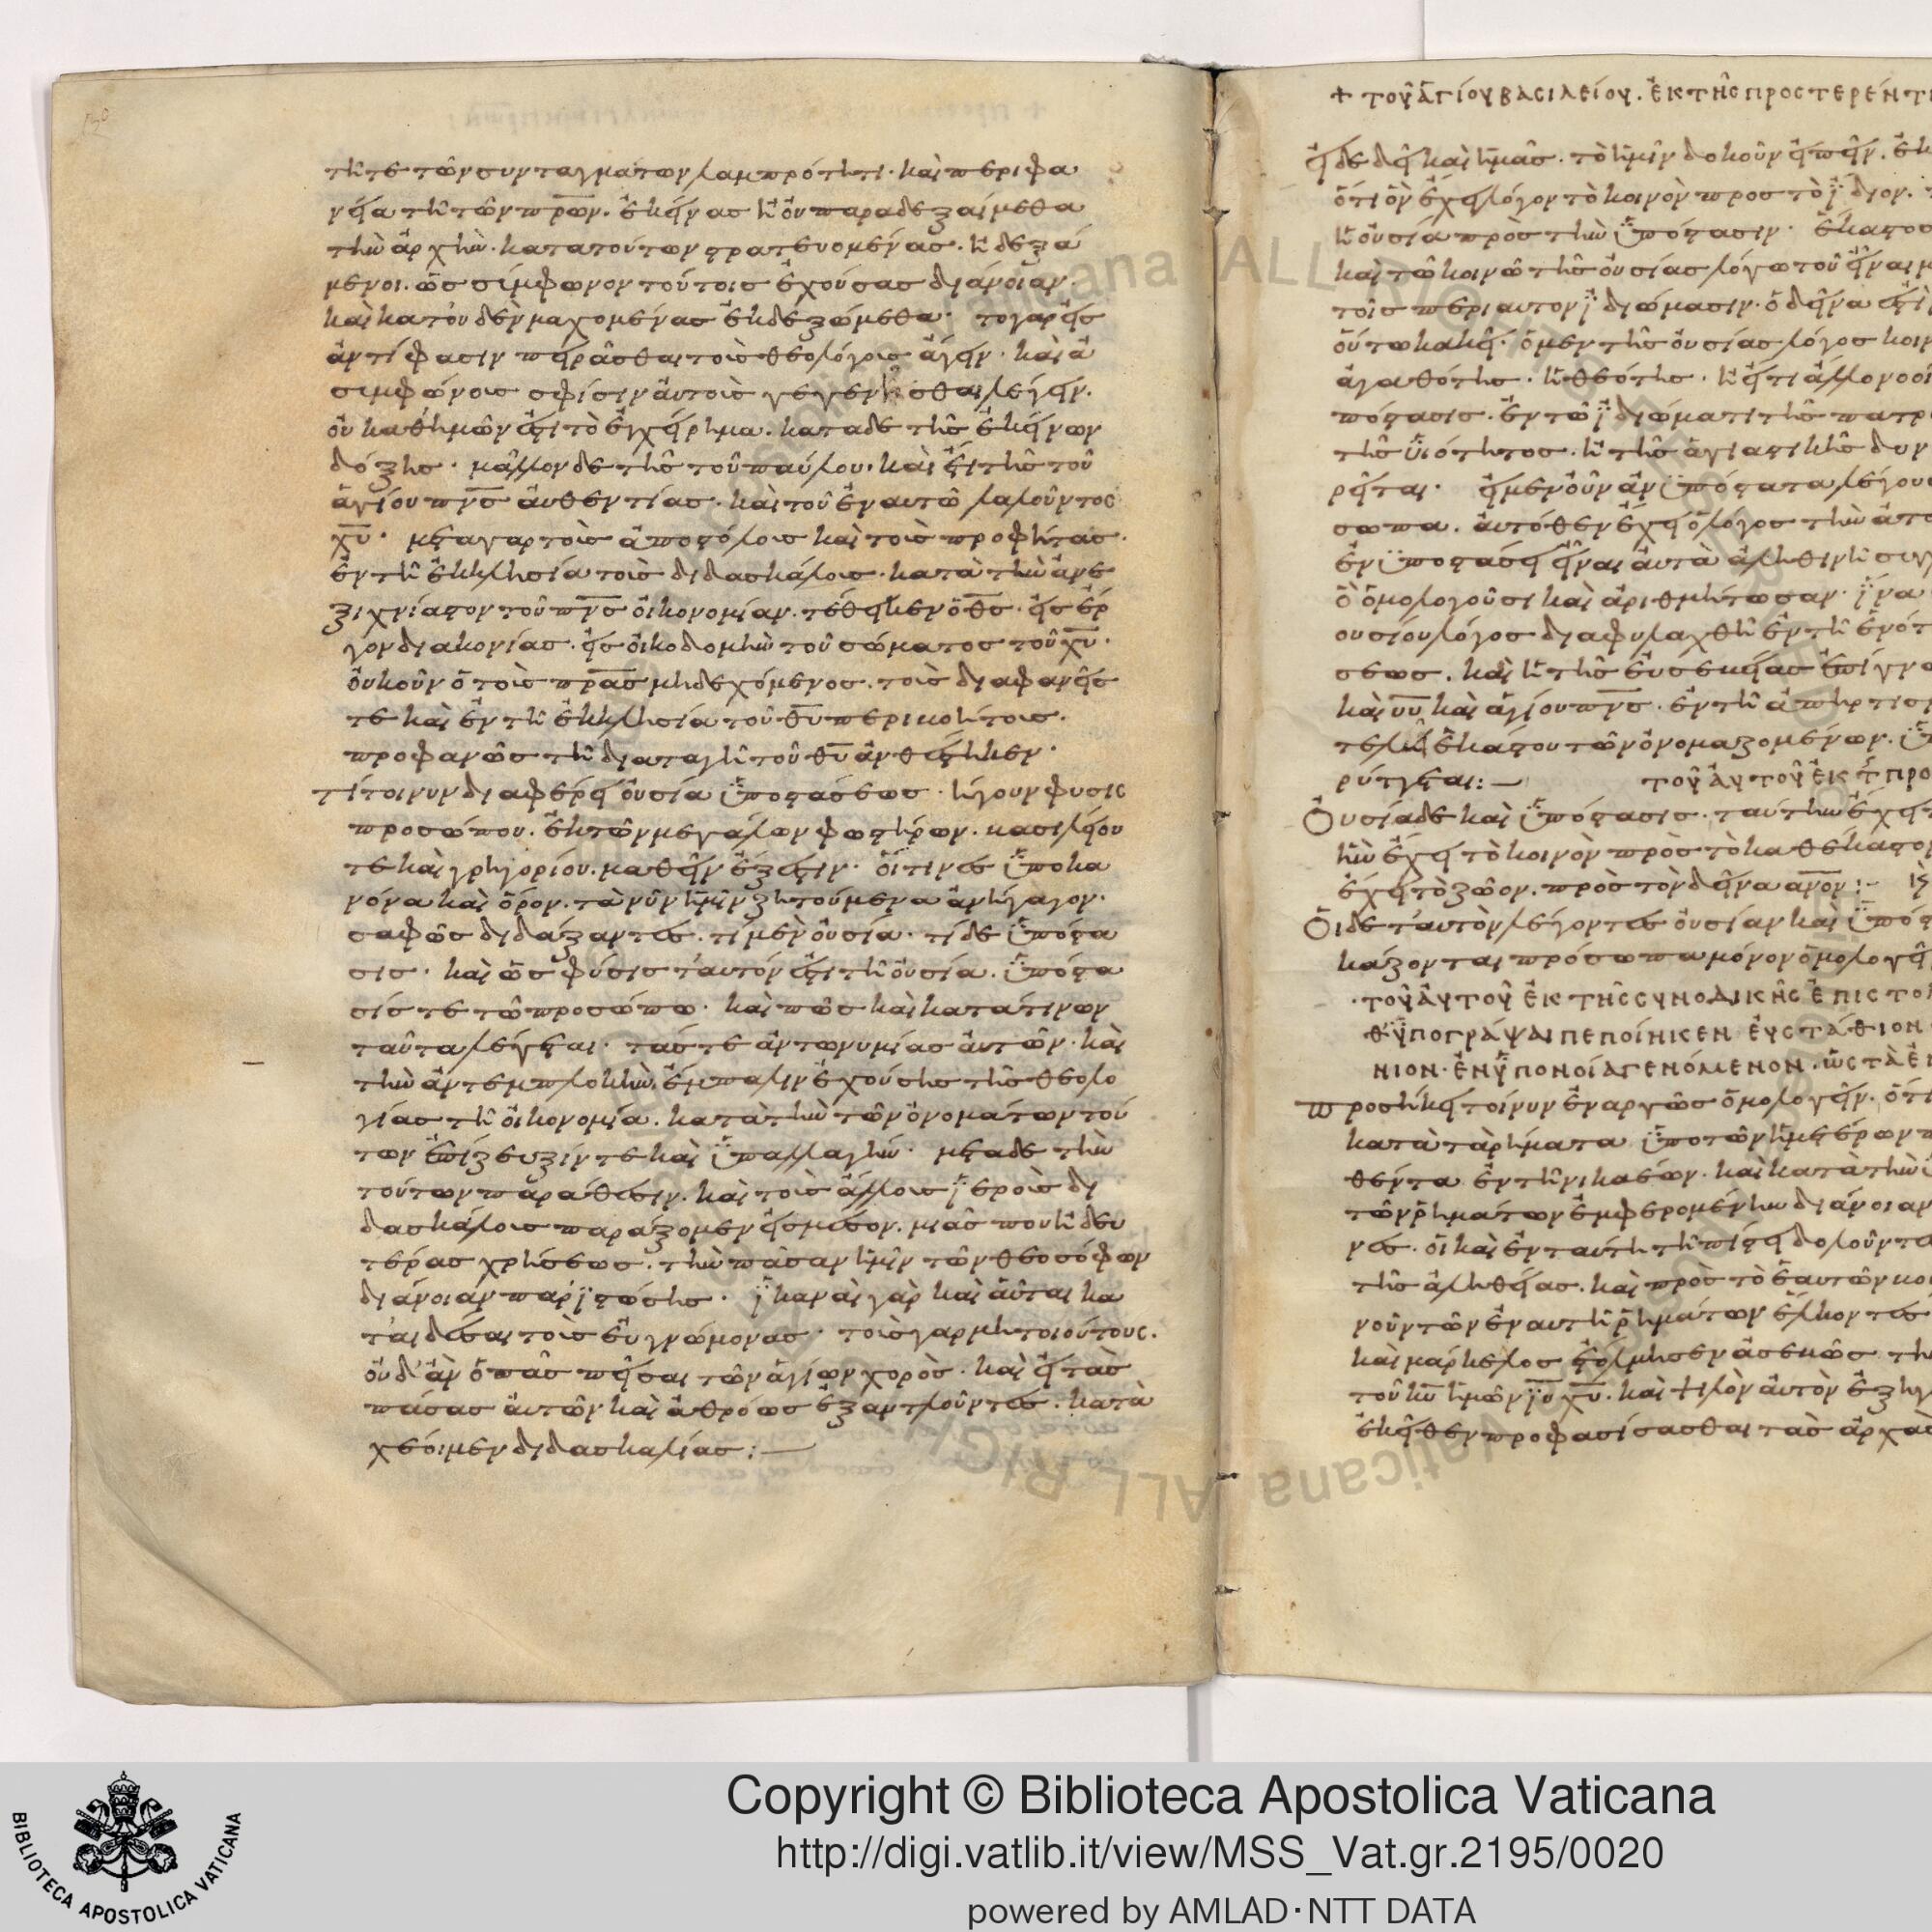 τῆ τε τῶν συνταγμάτων λαμπρότητι· καὶ περιφα
νεία τῆ τῶν πρων. ἐκείνας ἢ οὐ παραδεξαίμεθα
τὴν ἀρχὴν. κατα τούτων στρατευομένας· ἢ δεξά
μενοι. ὡς σύμφωνον τούτοις ἐχούσας διάνοιαν.
καὶ κατ' οὐδὲν μαχομένας ἐκδεξώμεθα· το γαρ εἰς
ἀντίφασιν πειρᾶσθαι τοὺς θεολόγους ἄγειν· καὶ ἀ
συμφώνους σφίσιν αὐτοῖς γεγενῆσθαι λέγειν.
οὐ καθ' ἡμῶν ἐστι τὸ ἐγχείρημα. κατα δε τῆς ἐκείνων
δόξης· μᾶλλον δε τῆς τοῦ παύλου. καὶ ἔτι τῆς τοῦ
ἁγίου πνς αὐθεντίας. καὶ τοῦ ἐν αυτῶ λαλοῦντος
χυ· μετα γαρ τοὺς ἀποστόλους καὶ τοὺς προφήτας.
ἐν τῆ ἐκκλησία τοὺς διδασκάλους. κατὰ τὴν ἀνε
ξιχνίαστον τοῦ πνς οἰκονομίαν. τέθεικεν ὁ θς· εἰς ἔρ
γον διακονίας. εἰς οἰκοδομὴν τοῦ σώματος τοῦ χυ·
οὐκοῦν ὁ τοὺς πρας μη δεχόμενος. τοὺς διαφανεῖς
τε καὶ ἐν τῆ ἐκκλησία τοῦ θυ περιβολήτους.
προφανῶς τῆ διαταγῆ τοῦ θυ ἀνθέστηκεν·
τί τοινυν διαφέρει οὐσία ὑποστάσεως· ἤγουν φυσις
προσώπου. ἐκ τῶν μεγάλων φωστήρων. βασιλείου
τε καὶ γρηγορίου. μαθεῖν ἔξεστιν· οἵτινες ὑπο κα
νόνα καὶ ὅρον. τὰ νῦν ἡμῖν ζητούμενα ἀνήγαγον·
σαφῶς διδάξαντες. τί μὲν οὐσία· τί δε ὑπόστα
σις· καὶ ὡς φύσις τ'αυτόν ἐστι τῆ οὐσία. ὑπόστα
σίς τε τῶ προσώπω· καὶ πῶς καὶ κατα τίνων
ταῦτα λέγεται· τάς τε ἀντωνυμίας αὐτῶν. καὶ
τὴν ἀντεμπλοκὴν. ἔμπαλιν ἐχούσης τῆς θεολο
γίας τῆ οἰκονομία. κατὰ τὴν τῶν ὀνομάτων τού
των ἐπίζευξίν τε καὶ ὑπαλλαγήν· μετα δε τὴν
τούτων παράθεσιν. καὶ τοὺς ἄλλους ἱεροὺς δι
δασκάλους παράξομεν εἰς μέσον. μιᾶς που ἢ δευ
τέρας χρήσεως. τὴν πᾶσαν ἡμῖν τῶν θεοσόφων
διάνοιαν παρϊστώσης· ἱκαναὶ γὰρ καὶ αὗται κα
ταιδέσαι τοὺς εὐγνώμονας· τοὺς γαρ μη τοιούτους.
οὐδ' ἂν ὁ πᾶς πείσαι τῶν ἁγίων χορὸς. καὶ εἰ τὰς
πάσας αὐτῶν καὶ ἀθρόως ἐξαντλοῦντες. κατὰ
χεόιμεν διδασκαλίας:—
+ τοῦ ἁγίου βασιλείου. ἐκ τῆς πρὸς τερέντι
εἰ δε δεῖ καὶ ἡμᾶς. τὸ ἡμῖν δοκοῦν εἰπεῖν.
ὅτι ὃν ἔχει λόγον τὸ κοινὸν προς τὸ ἴδιον.
ἡ οὐσία πρὸς τὴν ὑπόστασιν· ἕκαστος
καὶ τῶ κοινῶ τῆς οὐσίας λόγω τοῦ εἶναι
τοῖς περι αυτον ἰδιώμασιν· ὁ δεῖνα ἐστὶ
οὕτω κακεῖ· ὁ μεν τῆς οὐσίας λόγος κοιν
ἀγαθότης. ἡ θεότης. ἢ εἴ τι ἄλλο νοοῖ
πόστασις. ἐν τῶ ἰδιώματι τῆς πατρ
τῆς υἱότητος. ἢ τῆς ἁγιαστικῆς δυν
ρεῖται· εἰ μεν οὖν ἀνυπόστατα λέγουσ
σωπα. αὐτόθεν ἔχει ὁ λόγος τὴν ἀτο
ἐν ὑποστάσει εἶναι αὐτὰ ἀληθινῆ
ὃ ὁμολογοῦσι καὶ ἀριθμήτωσαν· ἵνα
ουσίου λόγος διαφυλαχθῆ ἐν τῆ ἑνότ
σεως. καὶ ἡ τῆς εὐσεβείας ἐπίγνω
καὶ υυ καὶ ἁγίου πνς. ἐν τῆ ἀπηρτισ
τελεῖ ἑκάστου τῶν ὀνομαζομένων.
ρύττεται:— τοῦ αὐτοῦ ἐκ τ προ
Οὐσία δε καὶ ὑπόστασις. ταύτην ἔχει
ἣν ἔχει τὸ κοινὸν πρὸς τὸ καθέκαστον
ἔχει τὸ ζῶον. πρὸς τὸν δεῖνα ανον:-
Οἱ δε τ'αυτὸν λέγοντες οὐσίαν καὶ ὑπόσ
κάζονται πρόσωπα μόνον ὁμολογεῖ
·τοῦ αὐτοῦ ἐκ τῆς συνοδικῆς ἐπιστολ
θ' ὑπογράψαι πεποίηκεν εὐστάθιον
νιον. ἐν ὑπονοία γενόμενον. ὡς τὰ
προσήκει τοίνυν ἐναργῶς ὁμολογεῖν. ὅτι
κατὰ τὰ ρήματα ὑπο τῶν ἡμετέρων π
θέντα ἐν τῆ νικαέων. καὶ κατὰ τὴν
τῶν ῥημάτων ἐμφερομένην διάνοιαν
νες. οἳ καὶ ἐν ταύτη τῆ πίστει δολοῦντε
τῆς ἀληθείας. καὶ πρὸς τὸ ἑαυτῶν βου
νοῦν τῶν ἐν αυτῆ ῥημάτων ἕλκοντες
καὶ μάρκελος ἐτόλμησεν ἀσεβῶς
τοῦ κυ ἡμῶν ιυ χυ. καὶ ψιλὸν αὐτὸν ἐξηγ
ἐκεῖθεν προφασίσασθαι τὰς ἀρχὰς
Copyright © Biblioteca Apostolica Vaticana
http://digi.vatlib.it/view/MSS_Vat.gr.2195/0020
powered by AMLAD·NTT DATA
BIBLIOTECA APOSTOLICA VATICANA